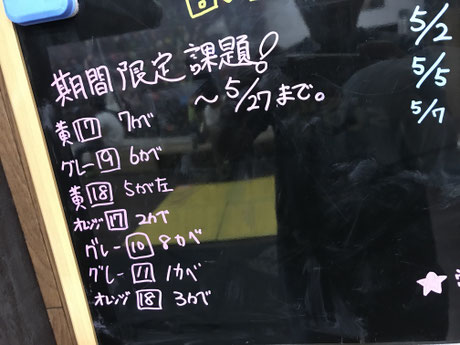 期間限定課題!
～5/27まで。
黄17 7かべ
グレー9 6かべ
黄18 5かべ左
オレンジ17 2かべ
グレー10 8かべ
グレー11 1かべ
オレンジ18 3かべ
5/2
5/5
5/7